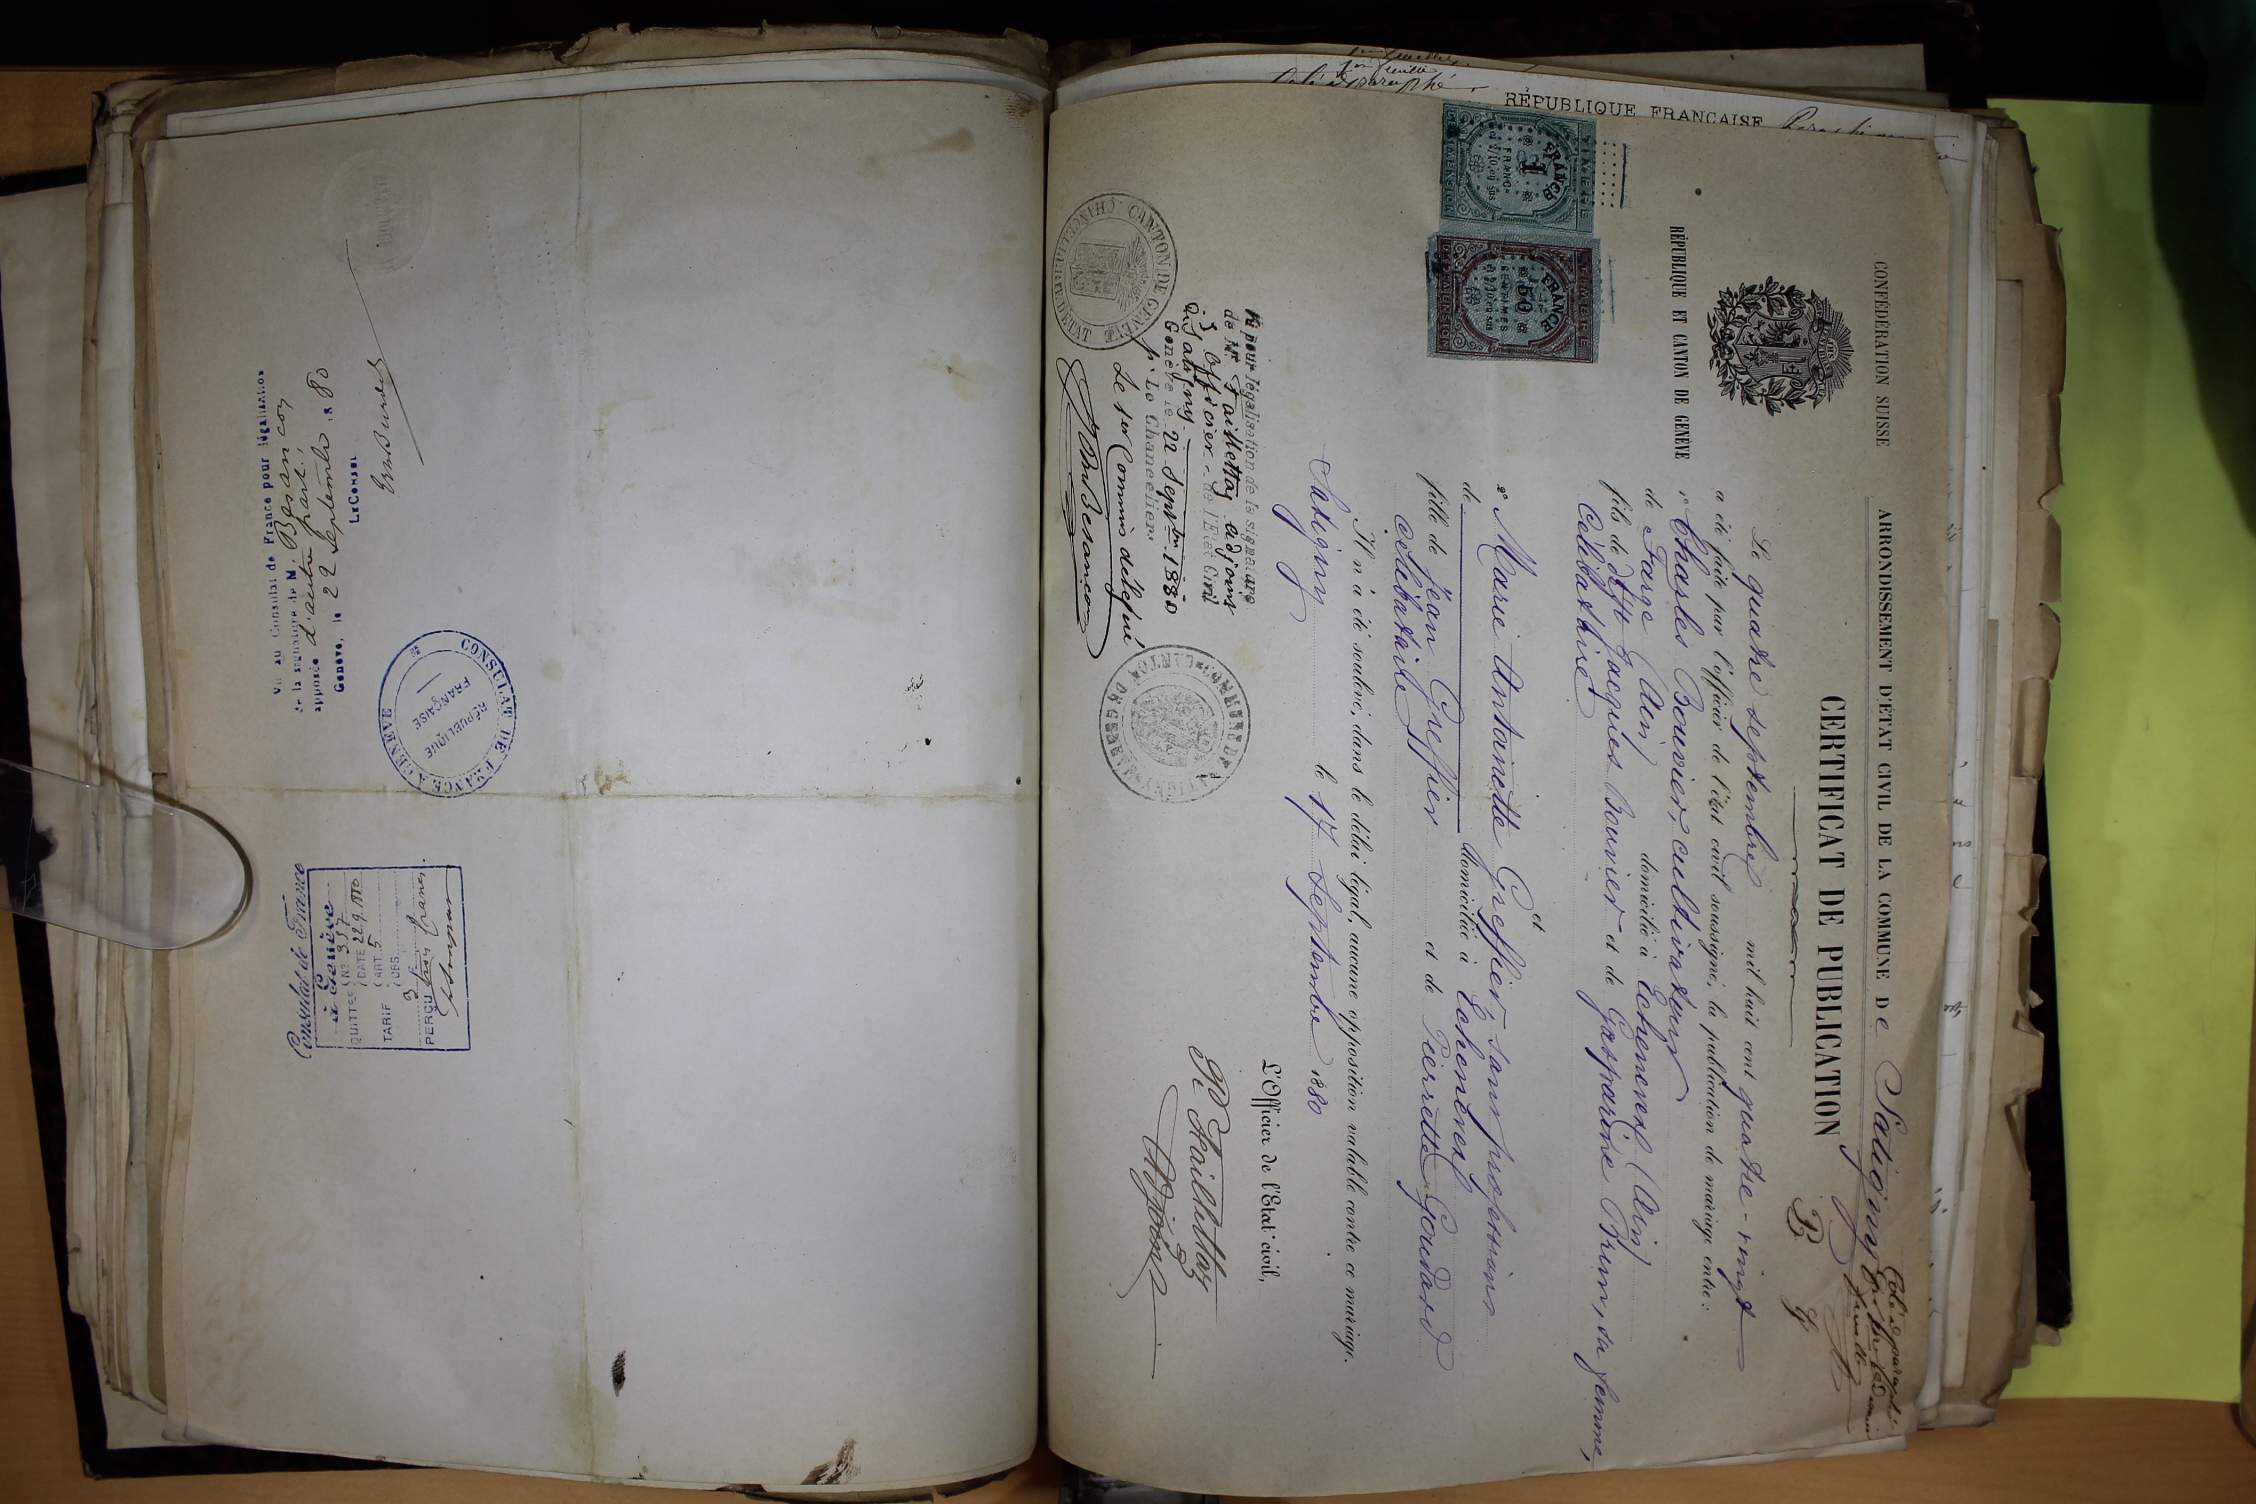 Vu au Consulat de France pour légalisation
de la signature de M. Besançon
apposée d'autre part.
Genève, le 22 Septembre 1880
LE CONSUL
CONSULAT DE FRANCE A GENÈVE
RÉPUBLIQUE
FRANÇAISE
Consulat de France
à Genève
QUITTCE No 357
DATE 22.9.1880
TARIF ART. 5
OBS.
PERÇU 3 f trois francs.
Coté & paraphé
RÉPUBLIQUE FRANÇAISE
CONFÉDÉRATION SUISSE
RÉPUBLIQUE ET CANTON DE GENÈVE
ARRONDISSEMENT D'ÉTAT CIVIL DE LA COMMUNE De Satigny
Coté & paraphé
CERTIFICAT DE PUBLICATION
Le quatre septembre mil huit cent quatre-vingt
a été faite par l'officier de l'état civil soussigné, la publication de mariage entre:
1o Charles Bouvier, cultivateur
de Farge (Ain) domicilié à Echenevex (Ain)
fils de dft Jacques Bouvier et de Gasparine Brun, sa femme,
Célibataire
et
2o Marie Antoinette Greffier sans profession
de domicilié à Echenevex (Ain)
fille de Jean Greffier et de Pierrette Goudard
célibataire
Il n'a été soulevé, dans le délai légal, aucune opposition valable contre ce mariage.
Satigny le 17 Septembre 1880
L'Officier de l'Etat civil,
Adjoint
Vu pour légalisation de la signature
de Mr Taillettaz adjoint
Officier de l'Etat Civil
Satigny
Genève le 22 Septbre 1880
p. Le Chancelier:
Le 1er Commis délégué
Besançon
CHANCELLERIE D'ETAT
CANTON DE GENÈVE
CANTON DE GENÈVE
FRANCE
1
FRANC
FRANCE
50
CENTIMES